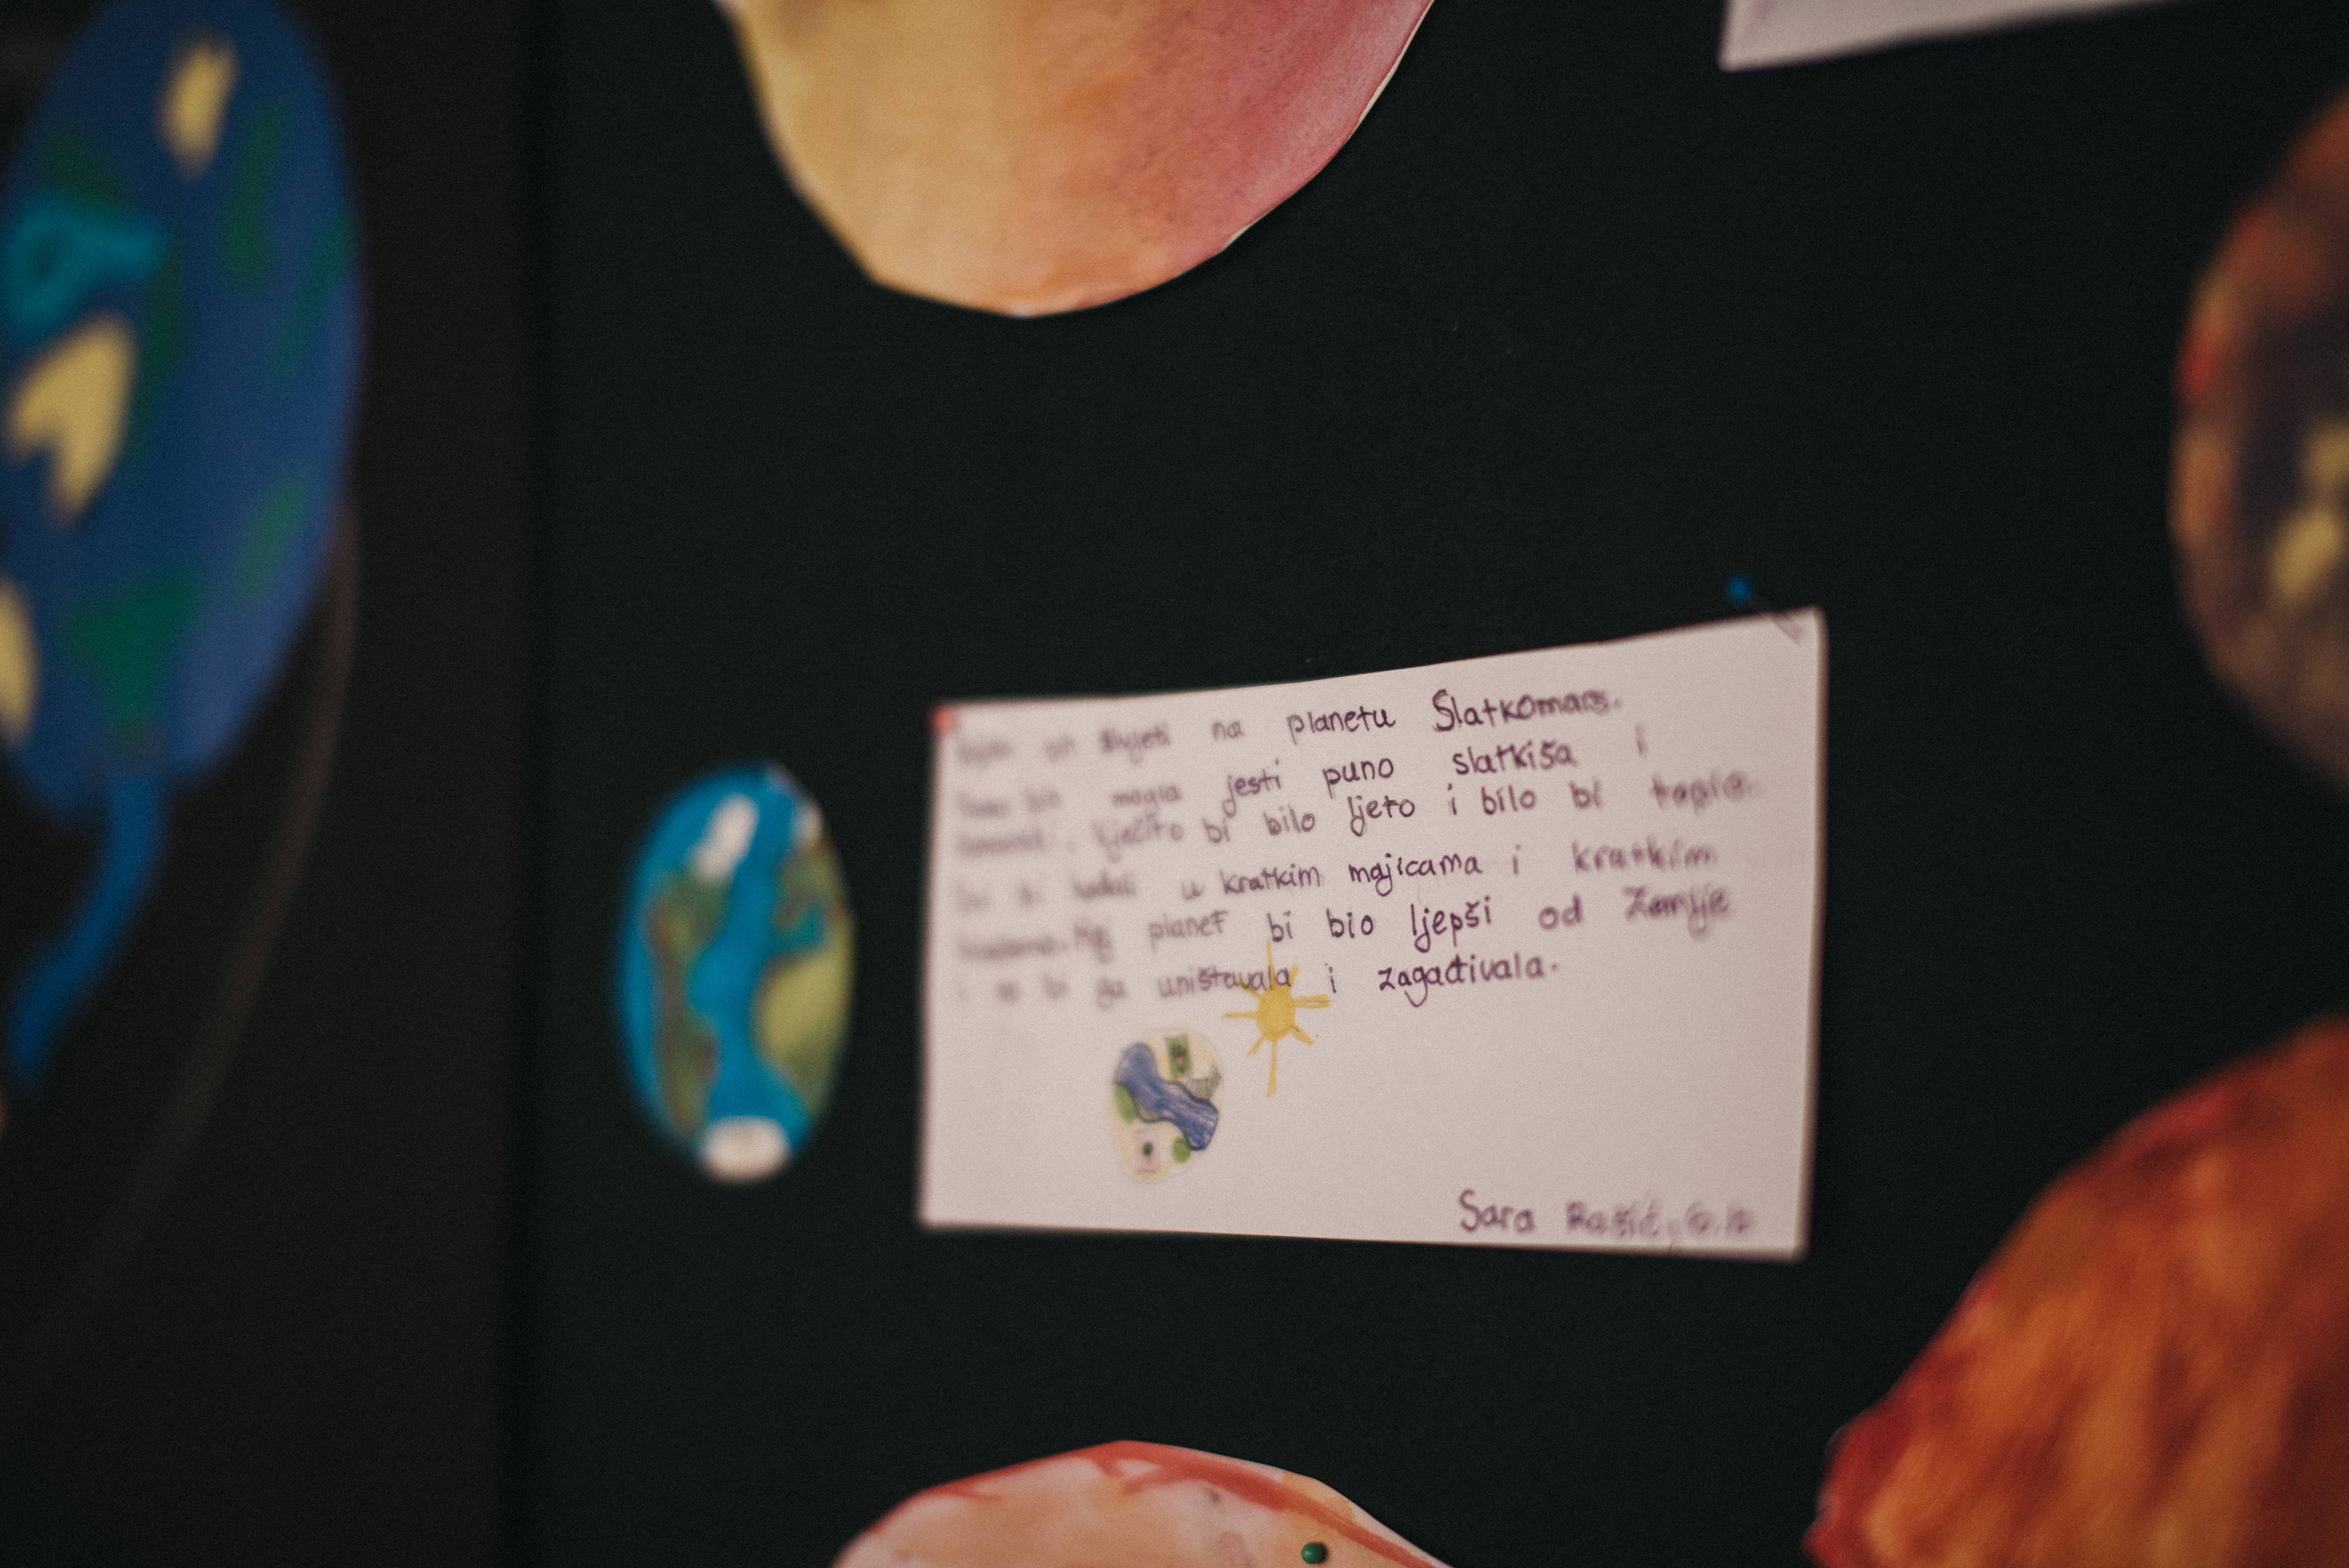 živjeti na planetu Slatkomars.
mogla jesti puno slatkiša i
Vječito bi bilo ljeto i bilo bi toplo.
u kratkim majicama i kratkim
Moj planet bi bio ljepši od Zemlje
i ne bi ga uništavala i zagađivala.
Sara Rašić, 6.b